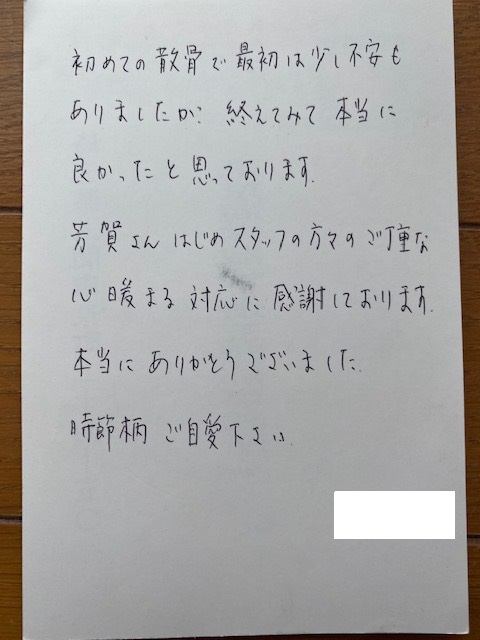 初めての散骨で最初は少し不安も
ありましたが、終えてみて本当に
良かったと思っております。
芳賀さんはじめスタッフの方々のご丁重な
心暖まる対応に感謝しております。
本当にありがとうございました。
時節柄ご自愛下さい。